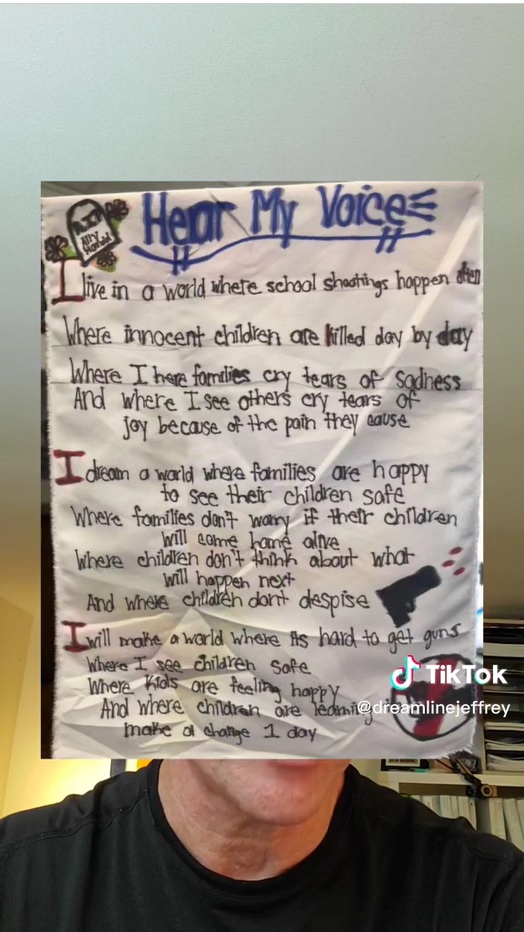 Hear My Voice
I live in a world where school shootings happen often
Where innocent children are killed day by day
Where I here families cry tears of sadness
And where I see others cry tears of
joy because of the pain they cause
I dream a world where families are happy
to see their children safe
Where families don't worry if their children
will come home alive
Where children don't think about what
will happen next
And where children dont despise
I will make a world where hard to get guns
Where I see children safe
Where kids are feeling happy
And where children are learning
make a change 1 day
TikTok
@dreamlinejeffrey